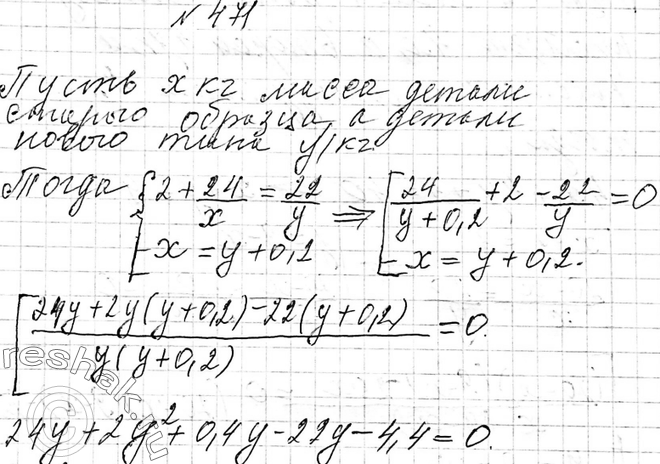 № 471
Пусть x кг масса детали
старого образца, а детали
нового типа y кг
Тогда { 2 + 24/x = 22/y ⇒ [ 24/(y+0,2) + 2 - 22/y = 0
x = y + 0,2 x = y + 0,2.
[ (24y + 2y(y+0,2) - 22(y+0,2)) / (y(y+0,2)) = 0.
24y + 2y² + 0,4y - 22y - 4,4 = 0.
reshak.ru